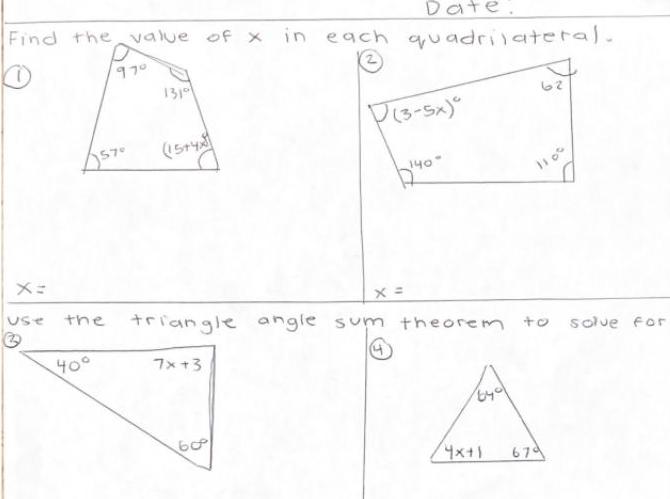 Date:
Find the value of x in each quadrilateral.
①
97°
131°
57°
(15+4x)°
x=
②
(3-5x)°
62
140°
110°
x=
use the triangle angle sum theorem to solve for
③
40°
7x+3
60°
④
64°
4x+1
67°